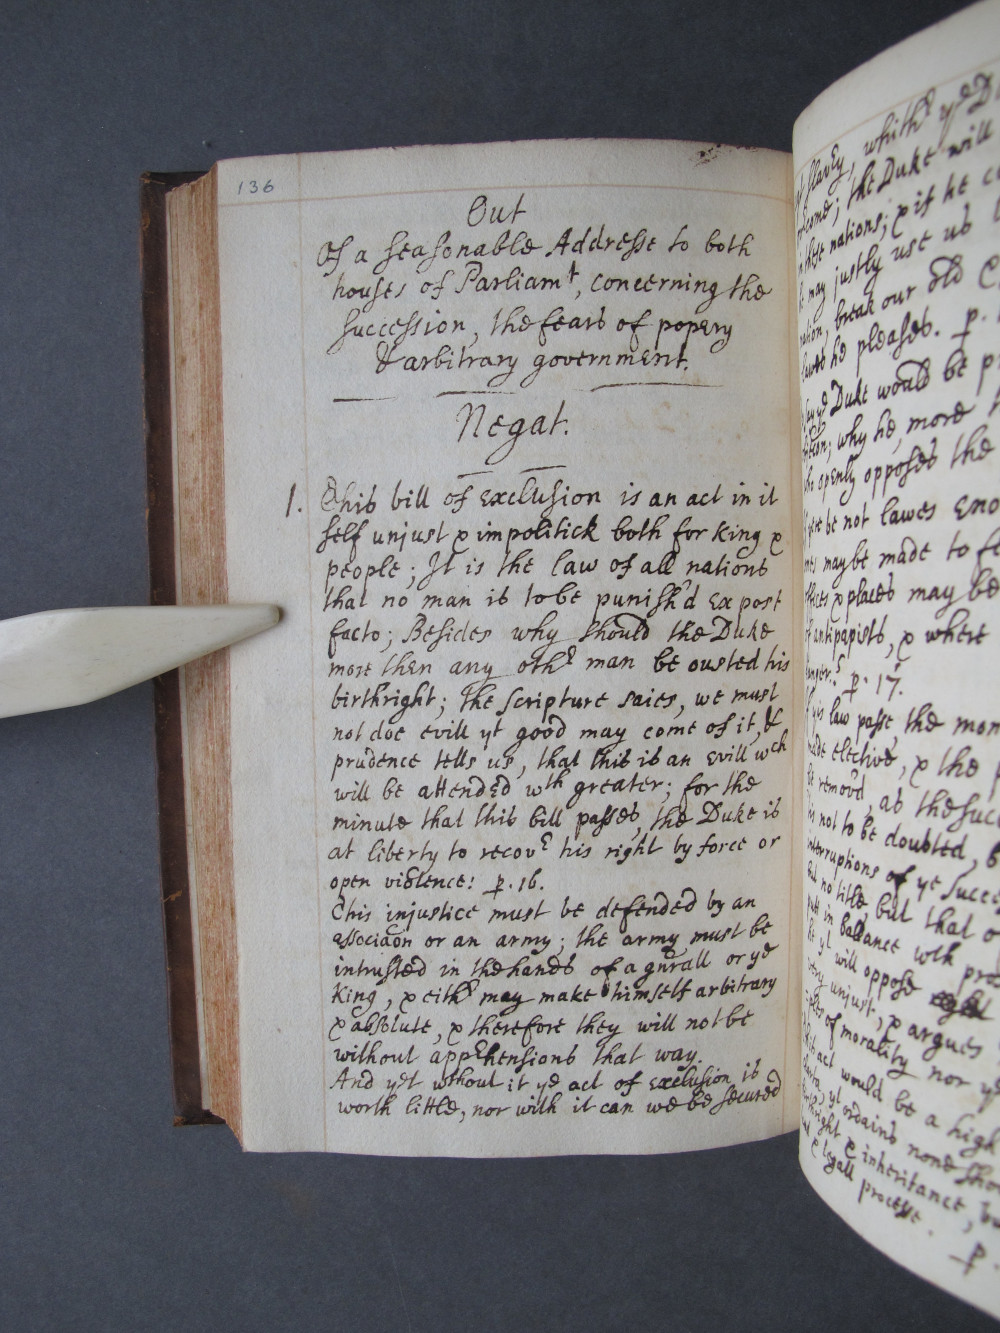 136
Out
Of a seasonable Addresse to both
houses of Parliamt, concerning the
succession, the fears of popery
& arbitrary government.
Negat.
1. This bill of exclusion is an act in it
self unjust & impolitick both for King &
people; It is the law of all nations
that no man is to be punish'd Ex post
facto; Besides why should the Duke
more then any othr man be ousted his
birthright; the scripture saies, we must
not doe evill yt good may come of it, &
prudence tells us, that this is an Evill wch
will be attended wth greater; for the
minute that this bill passes, the Duke is
at liberty to recovr his right by force or
open violence: p. 16.
This injustice must be defended by an
associaon or an army; the army must be
intrusted in the hands of a gnrall or ye
King, & eithr may make himself arbitrary
& absolute, & therefore they will not be
without apprehensions that way.
And yet without it ye act of exclusion is
worth little, nor with it can we be secured
slavery, whithr ye D
come; the Duke will
these nations; & if he c
he may justly use us
break our old
lawes he pleases. p.
Duke would be
why he, more
openly opposes the
be not lawes eno
may be made to fe
& places may be
antipapists, & where
p. 17.
law passe, the mon
made elective, & the p
be remov'd, as the succ
is not to be doubted, b
interruptions of ye succe
but no title but that o
putt in ballance wth
yt will oppose
very unjust, & argues
of morality nor ye
act would be a high
yt ordains none shou
birthright & inheritance, bu
& legall processe.
p.